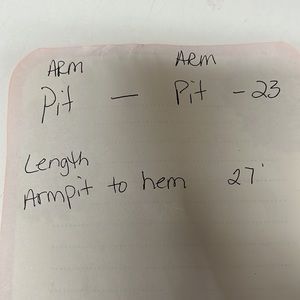 ARM ARM
Pit — Pit - 23
Length
Armpit to hem 27'